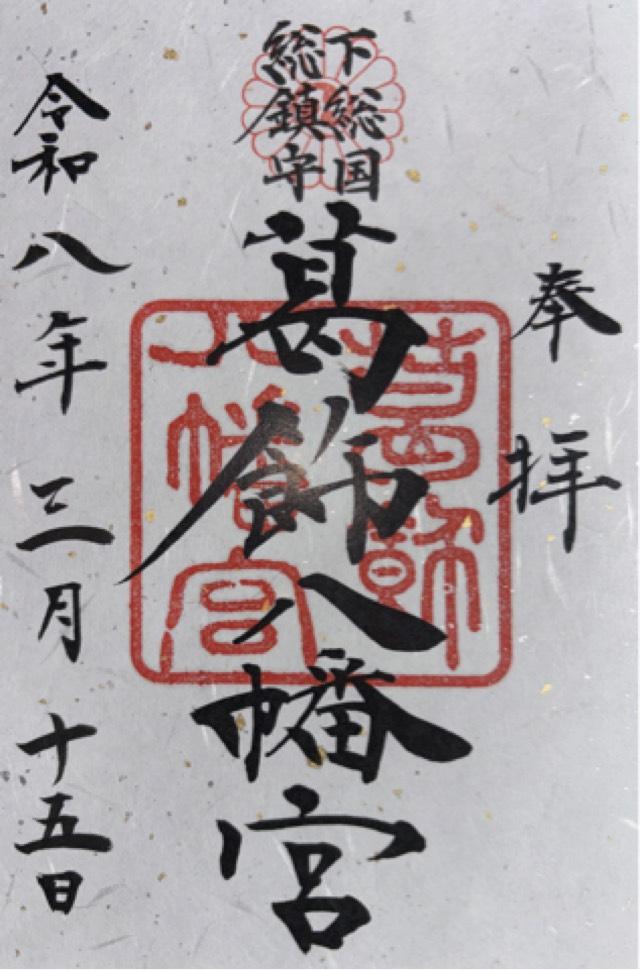 奉拝
下総国
総鎮守
葛飾八幡宮
葛飾
八幡宮
令和八年三月十五日